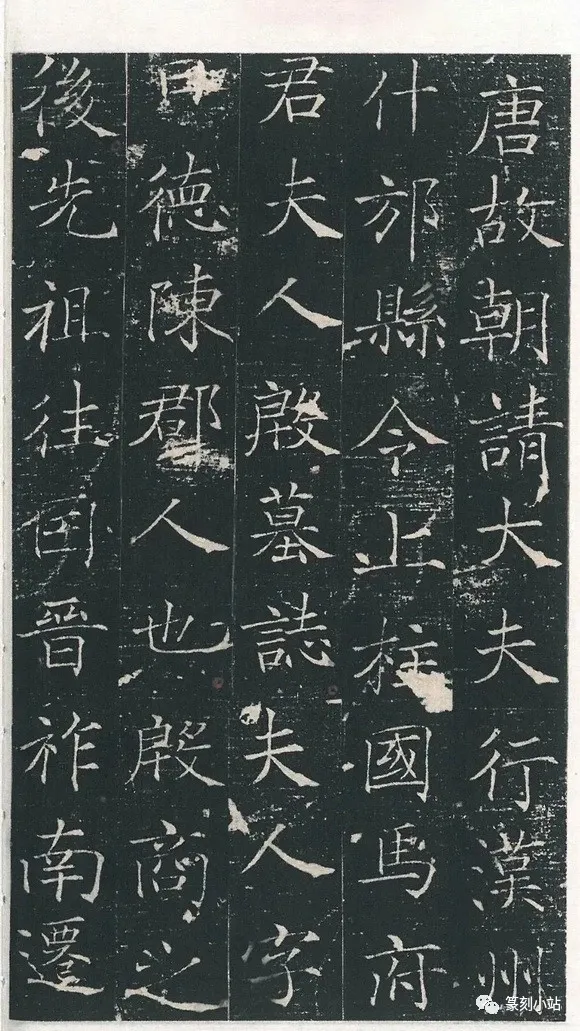 唐故朝請大夫行漢州
什邡縣令上柱國馬府
君夫人殷墓誌夫人字
日德陳郡人也殷商之
後先祖往因晉祚南遷
篆刻小站